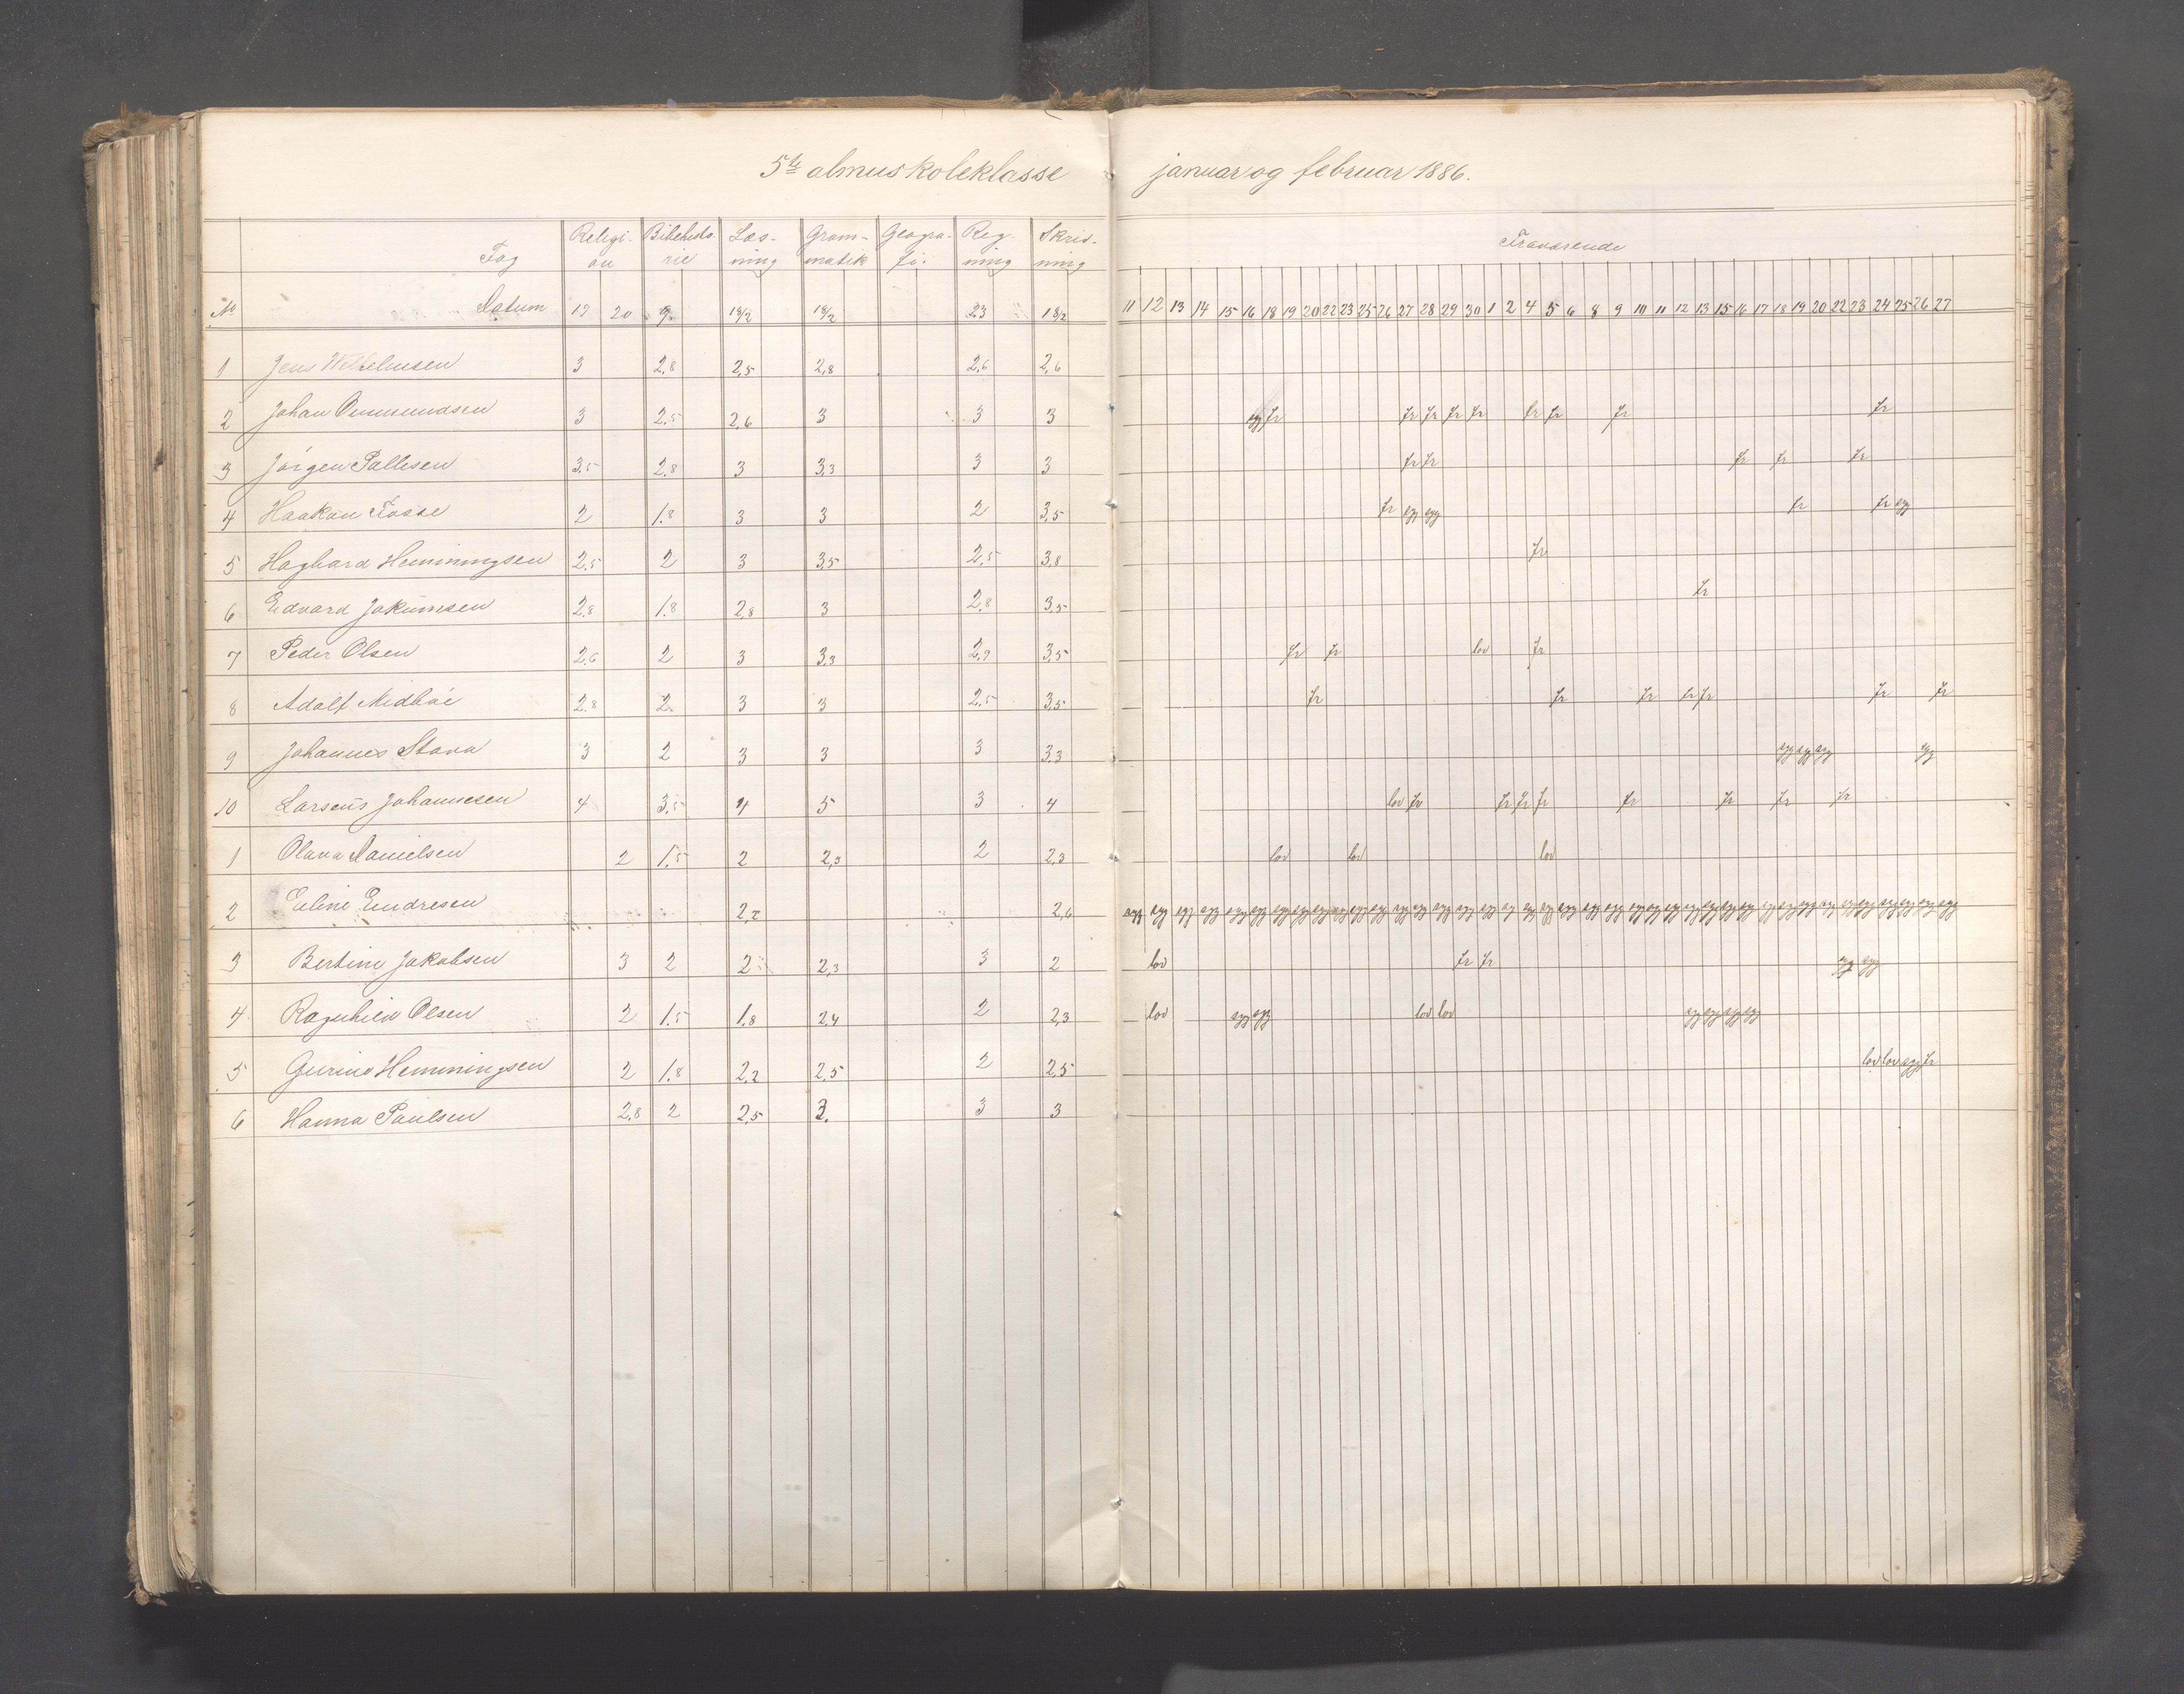 5te almuskoleklasse januar og februar 1886.
Fag Religion Bibelhistorie Læsning Grammatik Geografi. Regning Skrivning Fraværende
No Datum 19 20 9 18/2 18/2 23 18/2 11 12 13 14 15 16 18 19 20 22 23 25 26 27 28 29 30 1 2 4 5 6 8 9 10 11 12 13 15 16 17 18 19 20 22 23 24 25 26 27
1 Jens Wilhelmsen 3 2,8 2,5 2,8 2,6 2,6
2 Johan Ommundsen 3 2,5 2,6 3 3 3 syg fr fr fr fr fr fr fr fr fr
3 Jørgen Pallesen 3,5 2,8 3 3,3 3 3 fr fr fr fr fr
4 Haakon Fosse 2 1,8 3 3 2 3,5 fr syg syg fr fr syg
5 Hagbard Hemmingsen 2,5 2 3 3,5 2,5 3,8 fr
6 Edvard Jokumsen 2,8 1,8 2,8 3 2,8 3,5 fr
7 Peder Olsen 2,6 2 3 3,3 2,9 3,5 fr fr lov fr
8 Adolf Midbøe 2,8 2 3 3 2,5 3,5 fr fr fr fr fr fr fr
9 Johannes Stava 3 2 3 3 3 3,3 syg syg syg syg
10 Larseus Johannesen 4 3,5 4 5 3 4 lov fr fr fr fr fr fr fr fr
1 Olava Danielsen 2 1,5 2 2,3 2 2,3 lov lov lov
2 Eline Endresen 2,2 2,6 syg syg syg syg syg syg syg syg syg syg syg syg syg syg syg syg syg syg syg syg syg syg syg syg syg syg syg syg syg syg syg syg syg syg syg syg syg syg syg syg
3 Bertine Jakobsen 3 2 2 2,3 3 2 lov fr fr syg syg
4 Ragnhild Olsen 2 1,5 1,8 2,4 2 2,3 lov syg syg lov lov syg syg syg syg
5 Gurine Hemmingsen 2 1,8 2,2 2,5 2 2,5 lov lov syg fr
6 Hanna Paulsen 2,8 2 2,5 3. 3 3